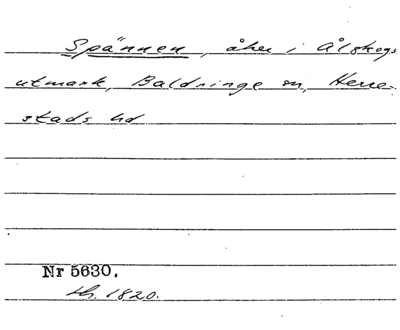 Spännen, åker i Älskogs
utmark, Baldringe sn, Herre-
stads hd
Nr 5630.
1820.